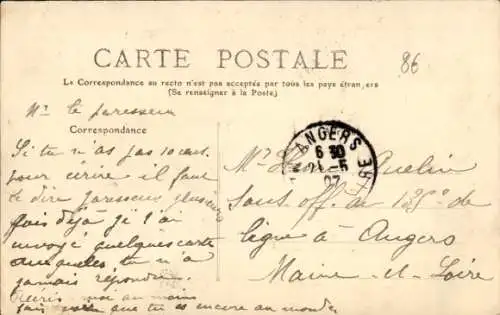 CARTE POSTALE
86
La Correspondance au recto n'est pas acceptée par tous les pays étrangers
(Se renseigner à la Poste)
Mr le paresseux
Correspondance
ANGERS
6 30
-5
07
Si tu n'as pas 10 cent.
pour écrire il faut
le dire paresseux plusieurs
fois déjà je t'ai
envoyé quelques carte
auxquelles tu n'a
jamais répondu.
écris moi au moins
que tu es encore au monde
Mr Quelin
Sous off. au 135e de
ligne à Angers
Maine-et-Loire